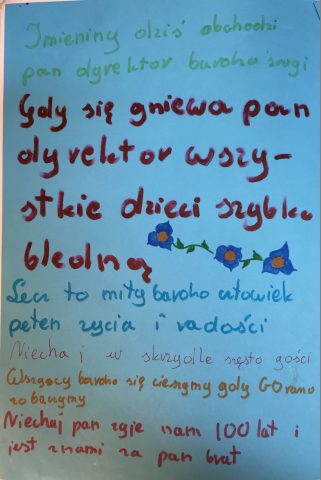 Imieniny dziś obchodzi
pan dyrektor bardzo srogi
Gdy się gniewa pan
dyrektor wszy-
stkie dzieci szybko
bledną
Lecz to miły bardzo człowiek
pełen życia i radości
Niechaj w skrzydle często gości
Wszyscy bardzo się cieszymy gdy GO rano
zobaczymy
Niechaj pan żyje nam 100 lat i
jest z nami za pan brat